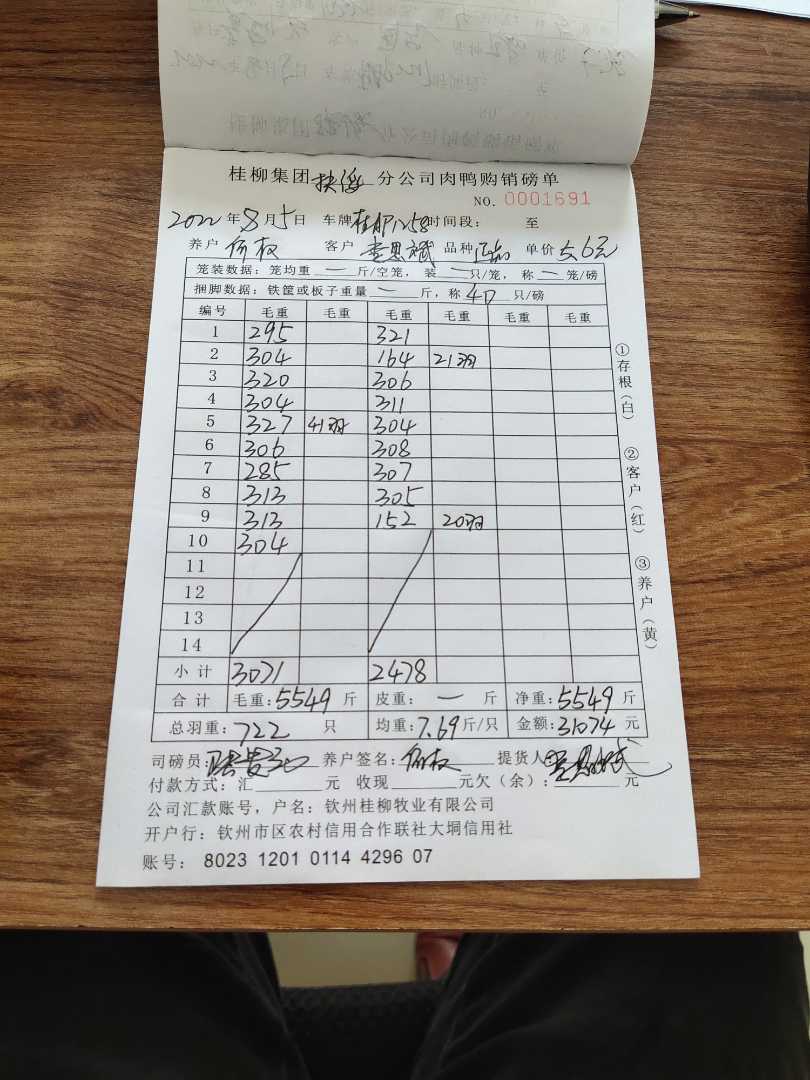 桂柳集团 扶隆 分公司肉鸭购销磅单
NO. 0001691
2022 年 8 月 5 日 车牌 桂AP1258 时间段： 至
养户 客户 李思斌 品种 正品 单价 5.6元
笼装数据：笼均重 一 斤/空笼，装 一 只/笼，称 一 笼/磅
捆脚数据：铁筐或板子重量 一 斤，称 40 只/磅
编号 毛重 毛重 毛重 毛重 毛重 毛重
1 295 321
2 304 164 21羽
3 320 306
4 304 311
5 327 41羽 304
6 306 308
7 285 307
8 313 305
9 313 152 20羽
10 304
11
12
13
14
小计 3071 2478
合计 毛重：5549 斤 皮重：一 斤 净重：5549 斤
总羽重：722 只 均重：7.69 斤/只 金额：31074 元
司磅员： 养户签名： 提货人
付款方式：汇 元 收现 元欠（余）： 元
公司汇款账号，户名：钦州桂柳牧业有限公司
开户行：钦州市区农村信用合作联社大垌信用社
账号： 8023 1201 0114 4296 07
①存根（白）
②客户（红）
③养户（黄）